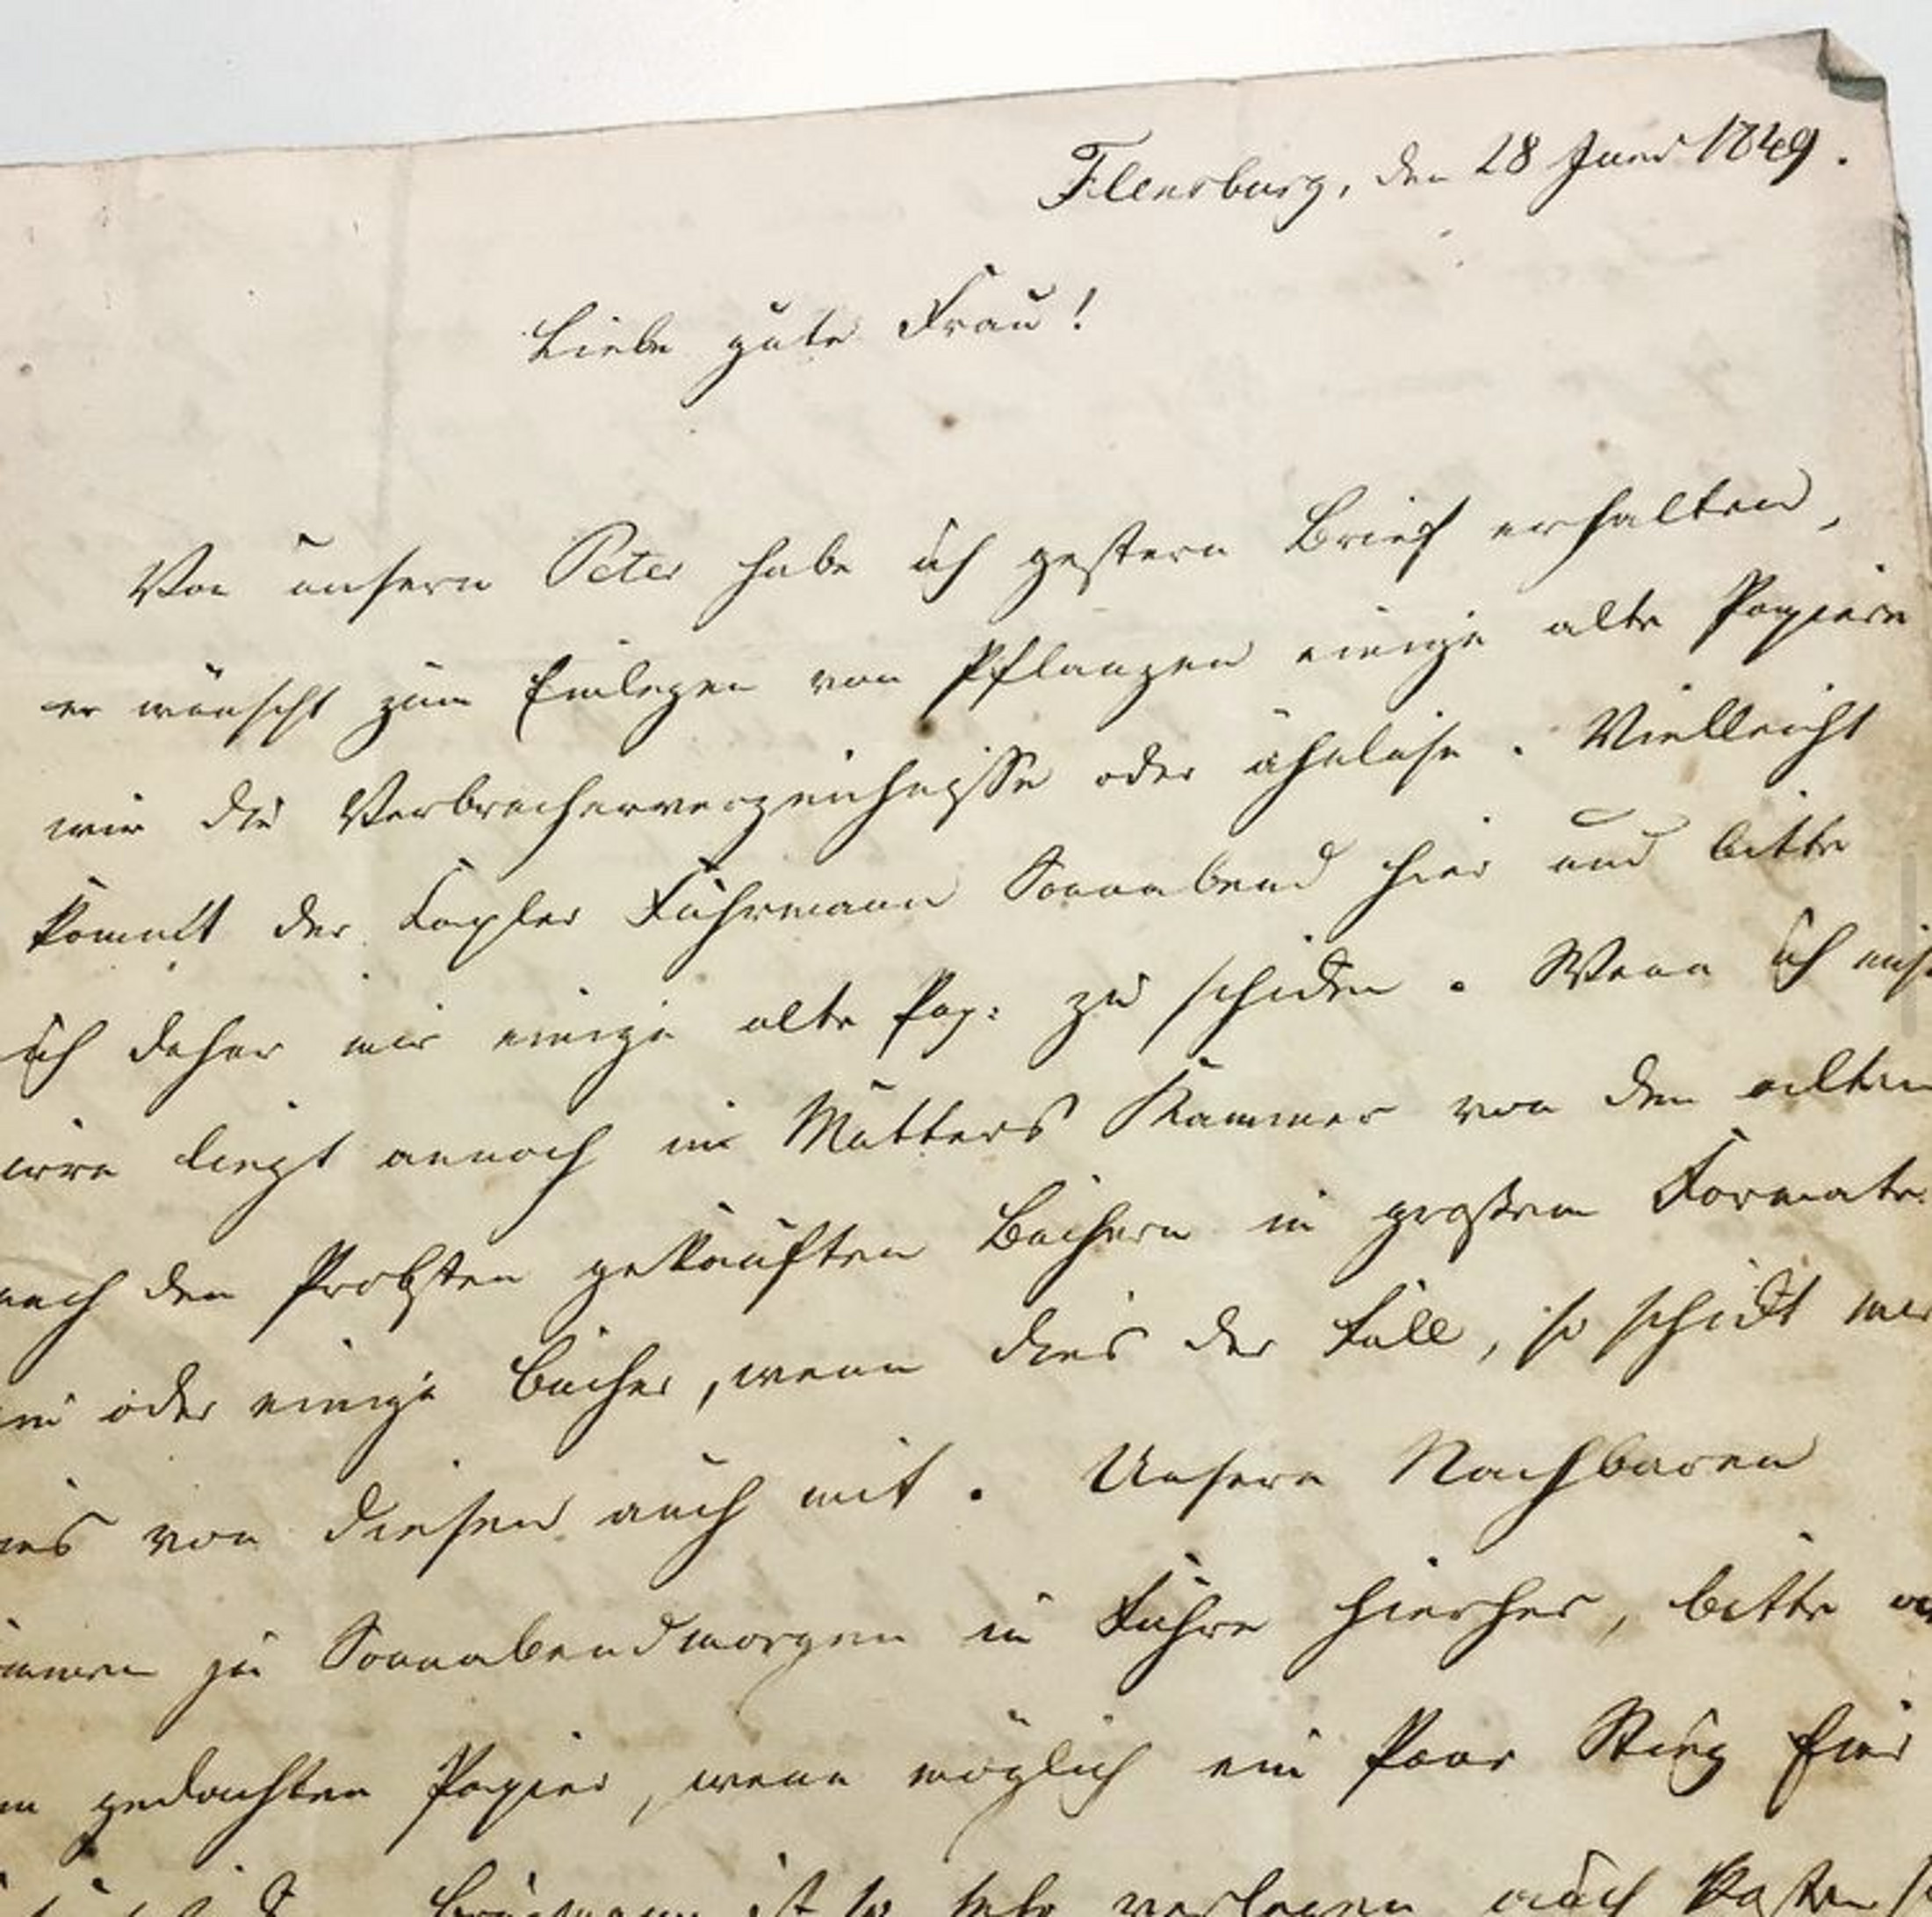 Flensburg, den 28 Juni 1849.
Liebe gute Frau!
Von unsern Peter habe ich gestern Brief erhalten,
er wünscht zum Einlegen von Pflanzen einige alte Papiere
wie die Verbrecherverzeichnisse oder ähnliche. Vielleicht
kommt der Fuhrmann Sonnabend hier und bitte
ich daher mir einige alte Pap: zu schicken. Wenn ich
irre liegt annoch in Mutters Kammer von den alten
nach den Probsten gekauften Büchern in großem Formate
oder einige Bücher, wenn dies der Fall, so schickt
von diesen auch mit. Unsere Nachbaren
ja Sonnabendmorgen in Fuhre hierher, bitte
gedachten Papier, wenn möglich ein Paar Stieg Eier
ist so sehr verlegen auch